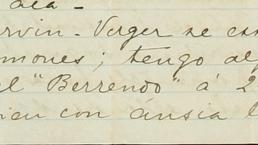 rvin - Verger se es
mones; tengo al
el "Berrendo" á 2
ien con ánsia l